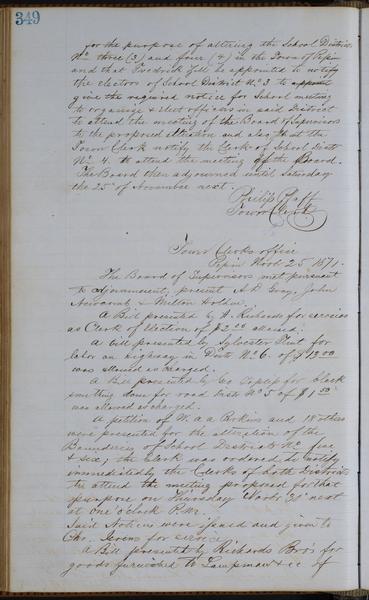 349
for the purpose of altering the School District
No three (3) and four (4) in the Town of Pepin
and that Fredrick Gill be appointed to notify
the electors of School District No 3 to
give the required notice for School meeting
to organise & elect officers in said District
to attend the meeting of the Board of Supervisors
to the proposed alteration and also that the
Town Clerk notify the Clerk of School Distr
No 4. to attend the meeting of the Board.
The Board then adjourned until Saturday
the 25th of November next.
Philip Pfaff
Town Clerk
Town Clerks office
Pepin Nov 25 1871.
The Board of Supervisors met pursuant
to Adjournment, present A D Gray, John
& Milton Holden.
A Bill presented by H. Richards for services
as Clerk of Election of $2.00 allowed.
A bill presented by Sylvester Flint for
labor on highway in Distr No 6. of $19.00
was allowed as charged.
A Bill presented by Geo for black
smithing done for road Distr No 5 of $1.50
was allowed as charged.
A petition of W. a a Perkins and 18 others
were presented for the alteration of the
Boundery of School Districts No five
& six, the Clerk was ordered to notify
immediatebly the Clerks of both Districts
to attend the meeting proposed for that
purpose on Thursday 30 next
at One o'clock P.M.
Said Notices were issued and given to
Cho. for service
A Bill presented by Richards Bro's for
goods furnished to of